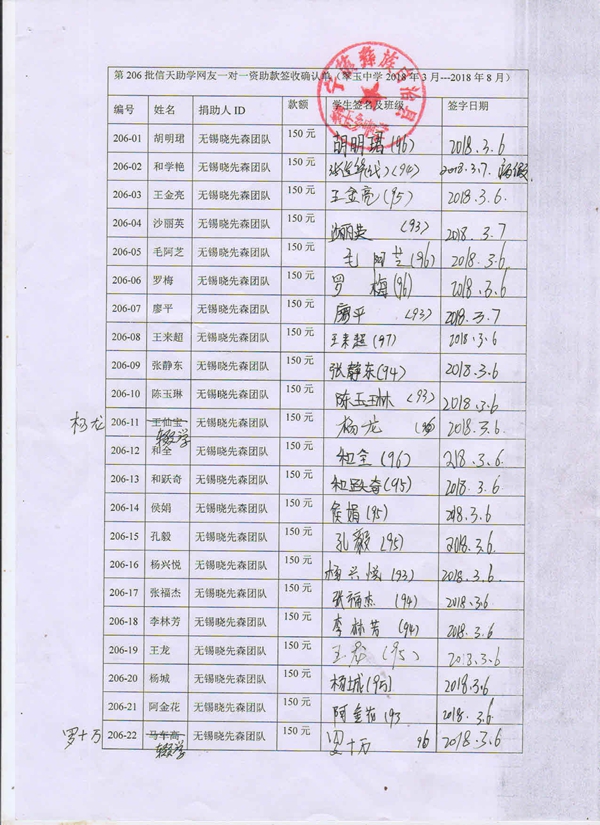 第 206 批信天助学网友一对一资助款签收确认单（翠玉中学 2018 年 3 月---2018 年 8 月）
宁蒗彝族自治县
编号 姓名 捐助人 ID 款额 学生签名及班级 签字日期
206-01 胡明珺 无锡晓先森团队 150 元 胡明珺(96) 2018.3.6
206-02 和学艳 无锡晓先森团队 150 元 (94) 2018.3.7.
206-03 王金亮 无锡晓先森团队 150 元 王金亮(95) 2018.3.6
206-04 沙丽英 无锡晓先森团队 150 元 沙丽英 (93) 2018.3.7
206-05 毛阿芝 无锡晓先森团队 150 元 毛阿芝(96) 2018.3.6
206-06 罗梅 无锡晓先森团队 150 元 罗梅(96) 2018.3.6
206-07 廖平 无锡晓先森团队 150 元 廖平 (93) 2018.3.7
206-08 王来超 无锡晓先森团队 150 元 王来超(97) 2018.3.6
206-09 张静东 无锡晓先森团队 150 元 张静东(94) 2018.3.6
206-10 陈玉琳 无锡晓先森团队 150 元 陈玉琳 (93) 2018.3.6
杨龙 206-11 王仙宝 辍学 无锡晓先森团队 150 元 杨龙 2018.3.6
206-12 和全 无锡晓先森团队 150 元 和全 (96) 2018.3.6
206-13 和跃奇 无锡晓先森团队 150 元 和跃奇(95) 2018.3.6
206-14 侯娟 无锡晓先森团队 150 元 侯娟(95) 2018.3.6
206-15 孔毅 无锡晓先森团队 150 元 孔毅 (95) 2018.3.6
206-16 杨兴悦 无锡晓先森团队 150 元 杨兴悦(93) 2018.3.6
206-17 张福杰 无锡晓先森团队 150 元 张福杰 (94) 2018.3.6
206-18 李林芳 无锡晓先森团队 150 元 李林芳 (94) 2018.3.6
206-19 王龙 无锡晓先森团队 150 元 王龙 (95) 2018.3.6
206-20 杨城 无锡晓先森团队 150 元 杨城(95) 2018.3.6
206-21 阿金花 无锡晓先森团队 150 元 阿金花 (93 2018.3.6
罗十万 206-22 马车高 辍学 无锡晓先森团队 150 元 罗十万 96 2018.3.6